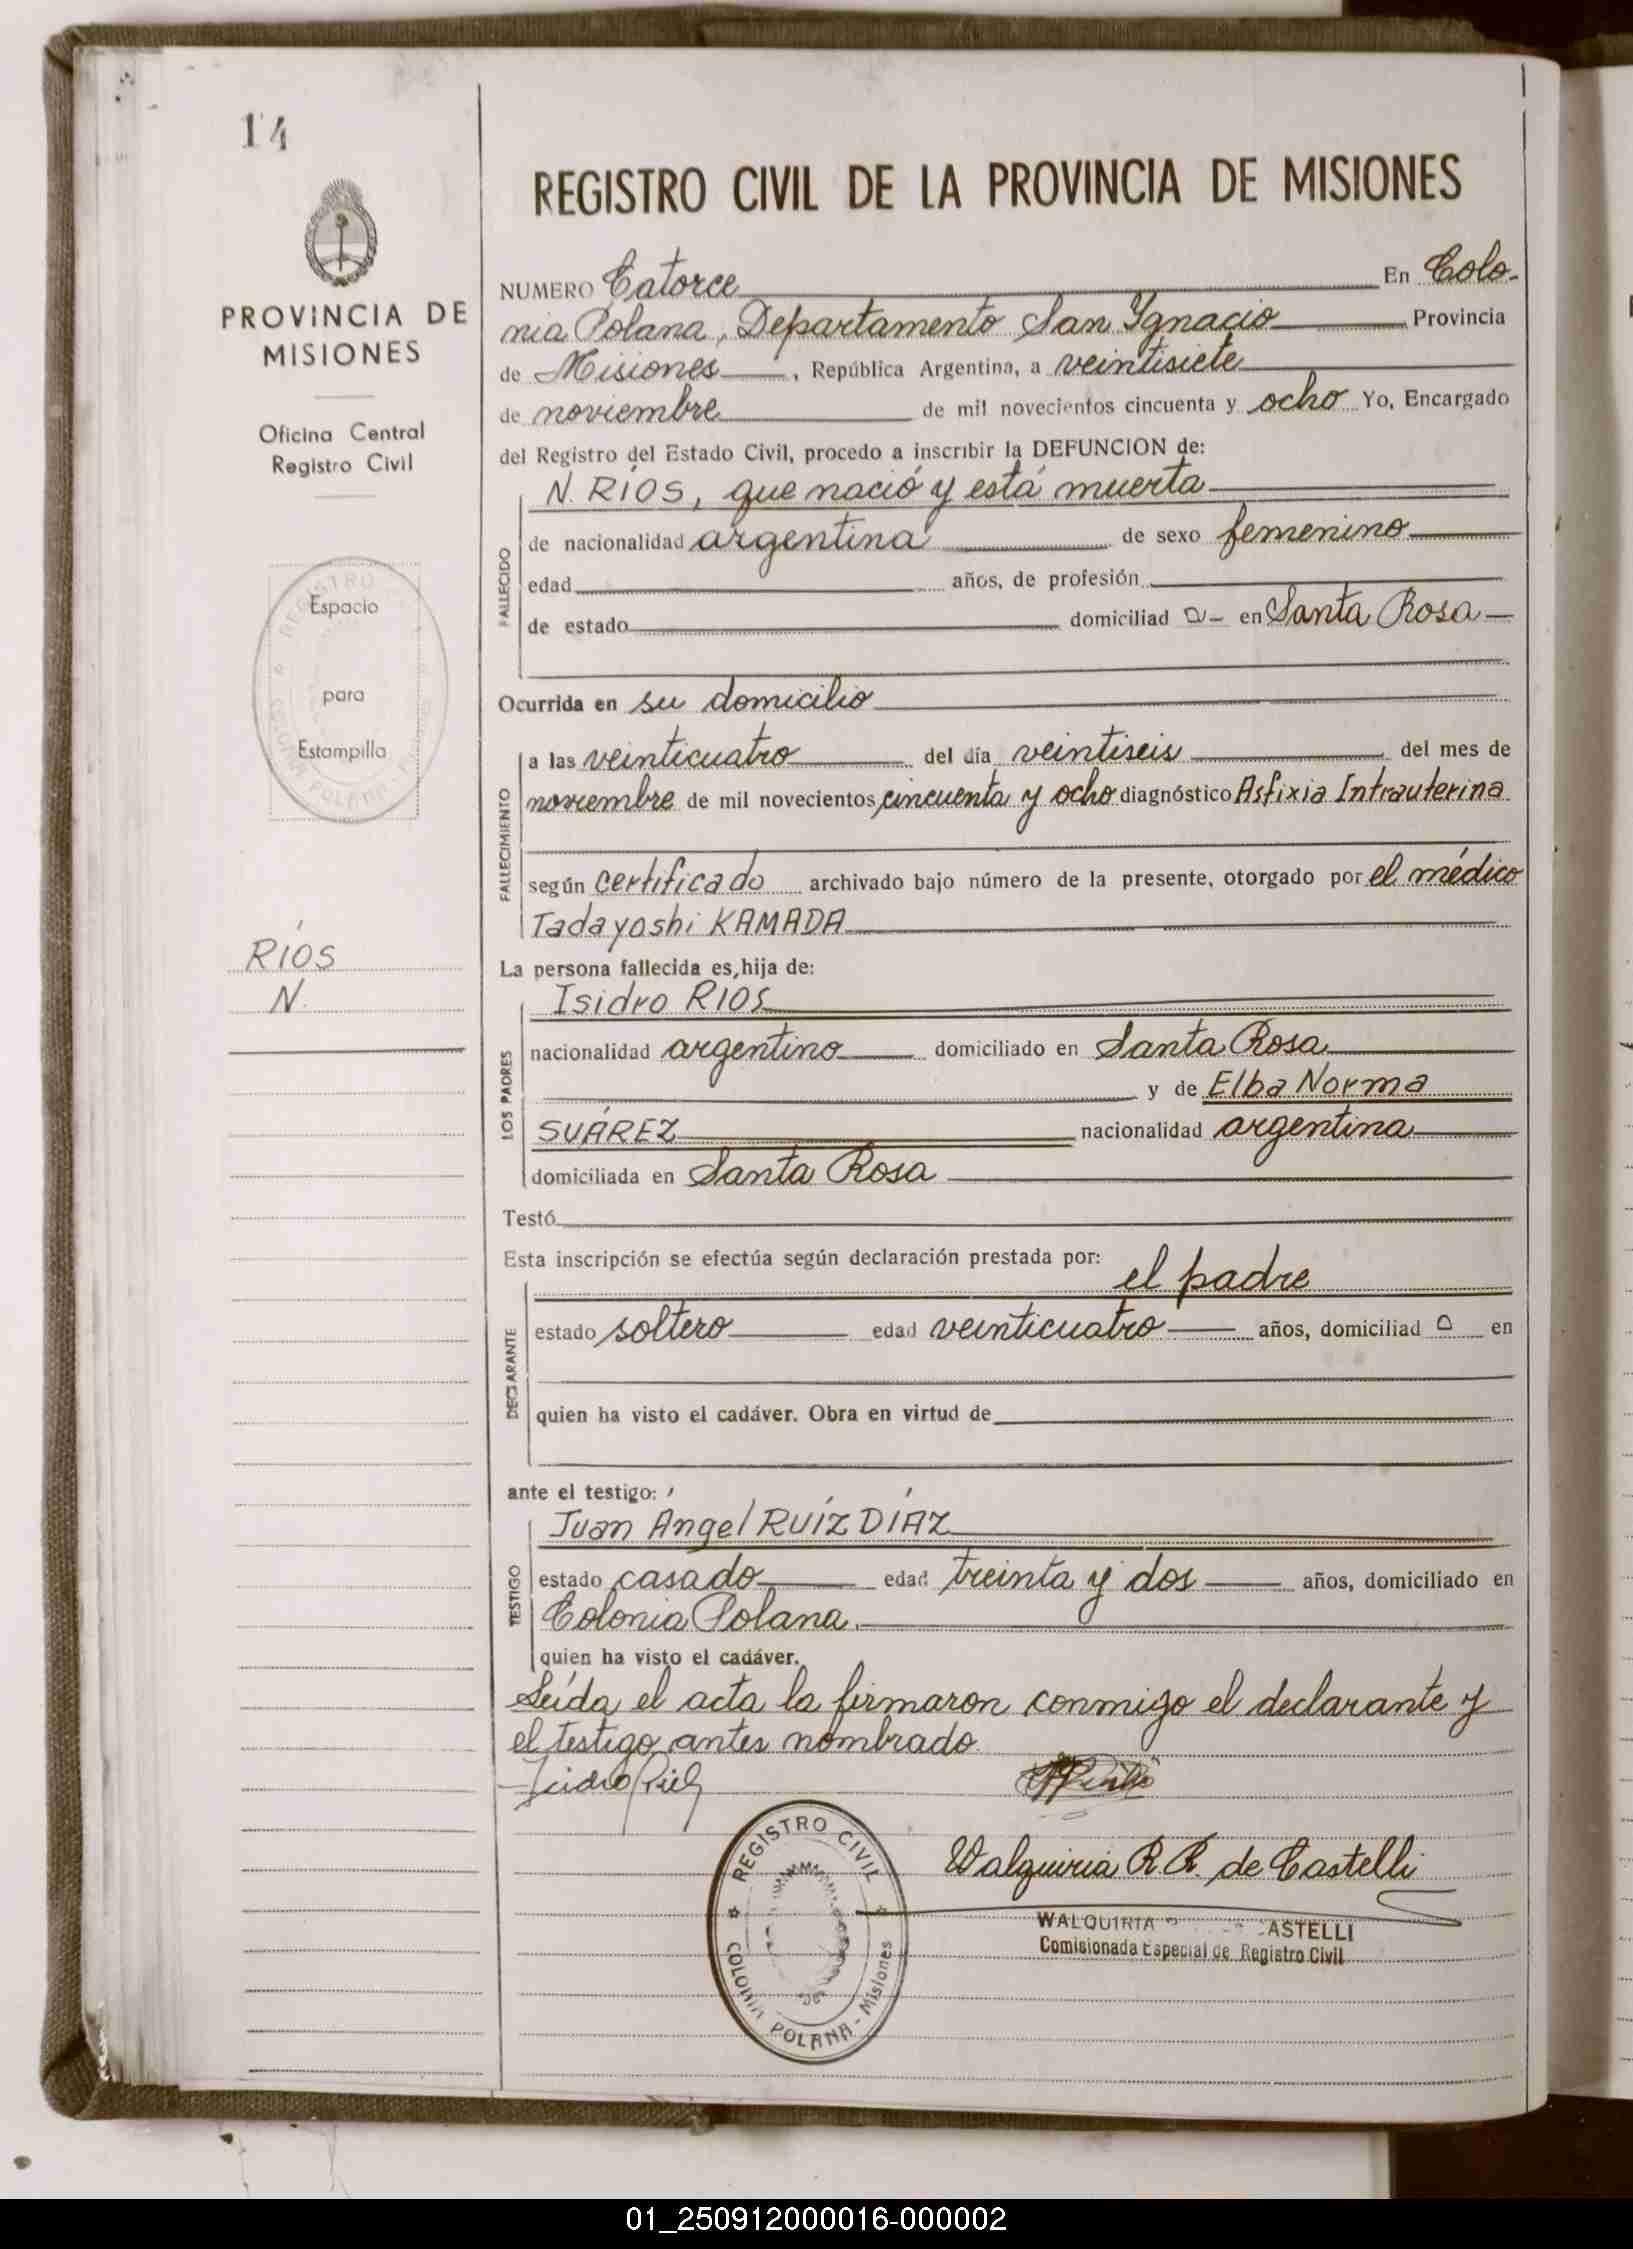 14
PROVINCIA DE
MISIONES
Oficina Central
Registro Civil
REGISTRO
Espacio
para
Estampilla
COLONIA POLANA
RÍOS
N.
REGISTRO CIVIL DE LA PROVINCIA DE MISIONES
NUMERO Catorce En Colo-
nia Polana, Departamento San Ygnacio Provincia
de Misiones, República Argentina, a veintisiete
de noviembre de mil novecientos cincuenta y ocho Yo, Encargado
del Registro del Estado Civil, procedo a inscribir la DEFUNCION de:
N. RÍOS, que nació y está muerta
FALLECIDO
de nacionalidad argentina de sexo femenino
edad años, de profesión
de estado domiciliad a en Santa Rosa
Ocurrida en su domicilio
FALLECIMIENTO
a las veinticuatro del día veintiseis del mes de
noviembre de mil novecientos cincuenta y ocho diagnóstico Asfixia Intrauterina
según certificado archivado bajo número de la presente, otorgado por el médico
Tadayoshi KAMADA
La persona fallecida es, hija de:
LOS PADRES
Isidro RIOS
nacionalidad argentino domiciliado en Santa Rosa
y de Elba Norma
SUÁREZ nacionalidad argentina
domiciliada en Santa Rosa
Testó
Esta inscripción se efectúa según declaración prestada por:
el padre
DECLARANTE
estado soltero edad veinticuatro años, domiciliad o en
quien ha visto el cadáver. Obra en virtud de
ante el testigo:
TESTIGO
Juan Angel RUÍZ DÍAZ
estado casado edad treinta y dos años, domiciliado en
Colonia Polana.
quien ha visto el cadáver.
Leída el acta la firmaron conmigo el declarante y
el testigo antes nombrado.
Isidro
REGISTRO CIVIL
COLONIA POLANA - Misiones
Walquiria R R. de Castelli
WALQUIRIA ASTELLI
Comisionada Especial de Registro Civil
01_250912000016-000002